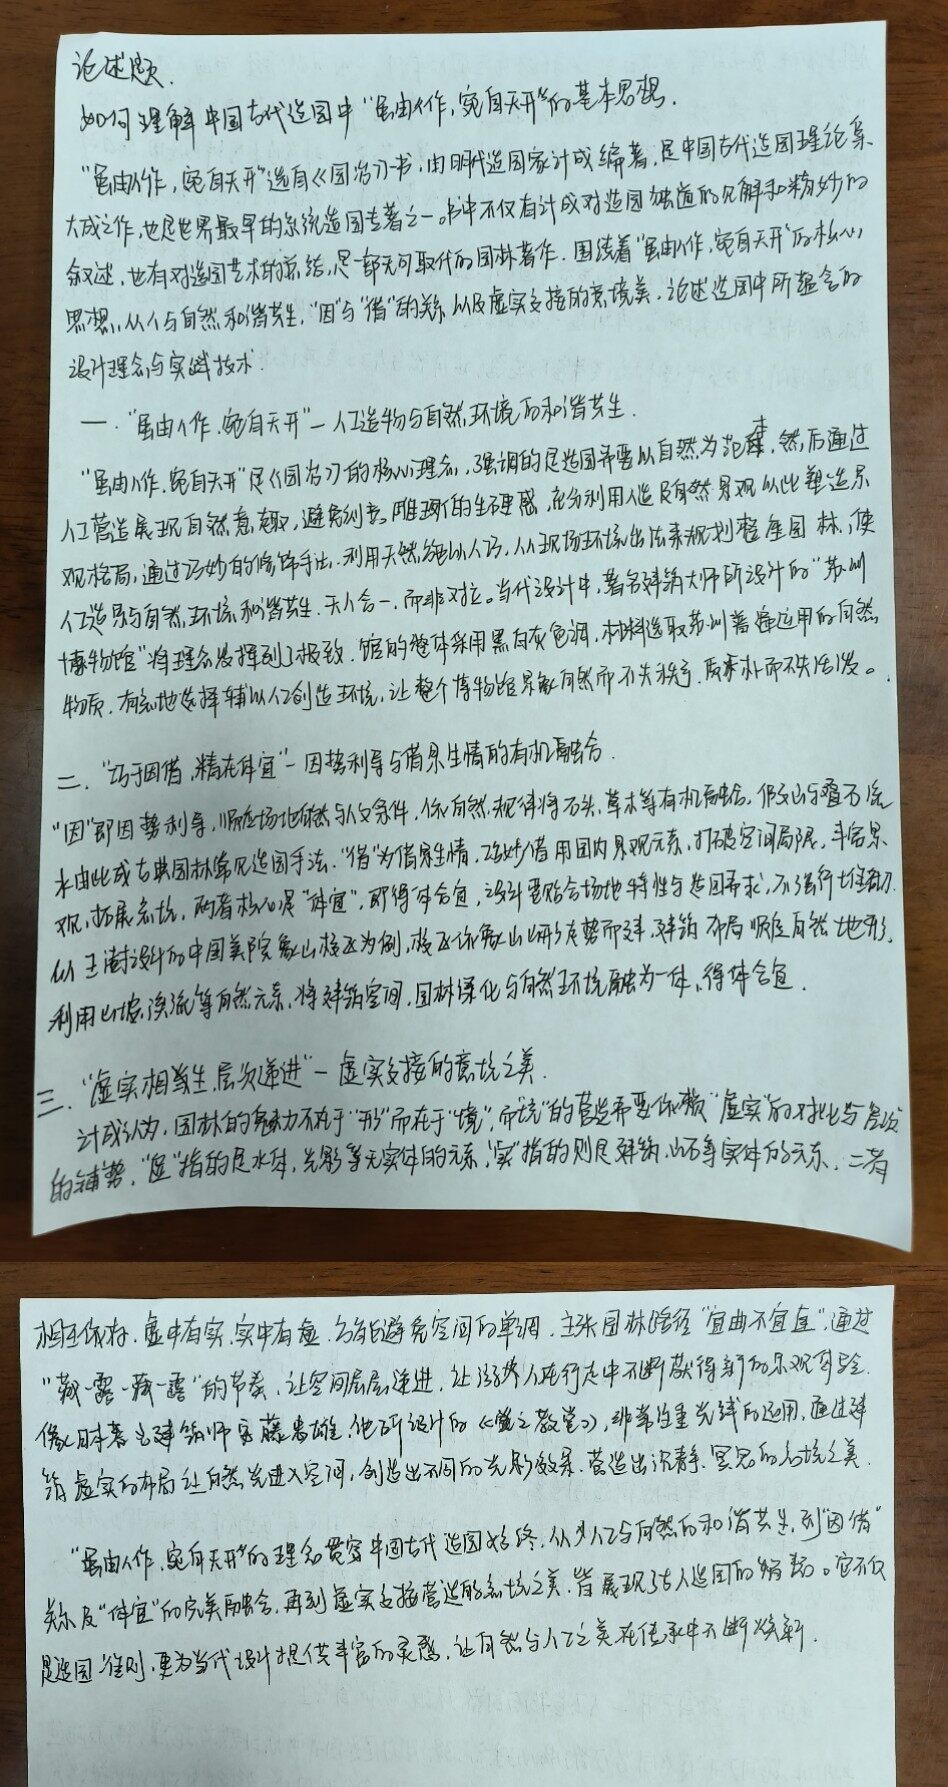 论述题.
如何理解中国古代造园中“虽由人作,宛自天开”的基本思想.
“虽由人作,宛自天开”选自《园冶》一书,由明代造园家计成编著,是中国古代造园理论集
大成之作,也是世界最早的系统造园专著之一。书中不仅有计成对造园独道的见解和精妙的
叙述,也有对造园艺术的总结,是一部无可取代的园林著作.围绕着“虽由人作,宛自天开”的核心
思想,从人与自然和谐共生,“因”与“借”的关系以及虚实交接的意境美,论述造园中所蕴含的
设计理念与实践技术.
一.“虽由人作.宛自天开”—人工造物与自然环境的和谐共生.
“虽由人作,宛自天开”是《园冶》的核心理念,强调的是造园需要以自然为范本,然后通过
人工营造展现自然意趣,避免刻意雕琢的生硬感,充分利用人造及自然景观以此塑造景
观格局,通过巧妙的修饰手法,利用天然辅以人巧,从现场环境出法来规划整座园林,使
人造景与自然环境和谐共生.天人合一,而非对立。当代设计中,著名建筑大师所设计的“苏州
博物馆”将理念发挥到了极致.馆的整体采用黑白灰色调,材料选取苏州普遍运用的自然
物质.有意地选择辅以人工创造环境,让整个博物馆景致自然而不失秩序,质朴而不失活泼。
二.“巧于因借,精在体宜”—因势利导与借景生情的有机融合.
“因”即因势利导,顺应场地自然与人文条件,依自然规律将石头,草木等有机融合,假山与叠石流
水由此成古典园林常见造园手法.“借”为借景生情,巧妙借用园内景观元素,打破空间局限,丰富景
观,拓展意境,两者核心是“体宜”,即得体合宜,设计要贴合场地特性与造园需求,不强行堆砌.
以王澍设计的中国美院象山校区为例,校区依象山山形走势而建.建筑布局顺应自然地形,
利用山坡,溪流等自然元素,将建筑空间.园林绿化与自然环境融为一体,得体合宜.
三.“虚实相生,层次递进”—虚实交接的意境之美.
计成认为,园林的魅力不在于“形”而在于“境”,而“境”的营造需要依赖“虚实”的对比与层次
的铺势.“虚”指的是水体,光影等无实体的元素,“实”指的则是建筑,山石等实体的元素.二者
相互依存.虚中有实.实中有虚.方能避免空间的单调.主张园林路径“宜曲不宜直”,通过
“藏-露-藏-露”的节奏,让空间层层递进,让游客人在行走中不断获得新的景观体验.
像日本著名建筑师安藤忠雄,他所设计的《光之教堂》,非常注重光线的运用,通过建
筑虚实的布局让自然光进入空间,创造出不同的光影效果.营造出沉静.冥思的意境之美.
“虽由人作.宛自天开”的理念贯穿中国古代造园始终,从人工与自然的和谐共生,到“因借”
关系及“体宜”的完美融合,再到虚实交接营造的意境之美.皆展现了古人造园的智慧。它不仅
是造园准则,更为当代设计提供丰富的灵感,让自然与人工之美在传承中不断焕新.